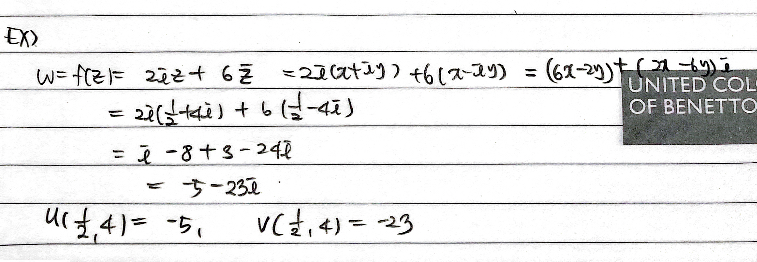 EX)
w = f(z) = 2iz + 6z̄ = 2i(x+iy) + 6(x-iy) = (6x-2y) + (2x-6y)i
= 2i(½+4i) + 6(½-4i)
= i - 8 + 3 - 24i
= -5 - 23i
u(½, 4) = -5, v(½, 4) = -23
UNITED COL
OF BENETTO